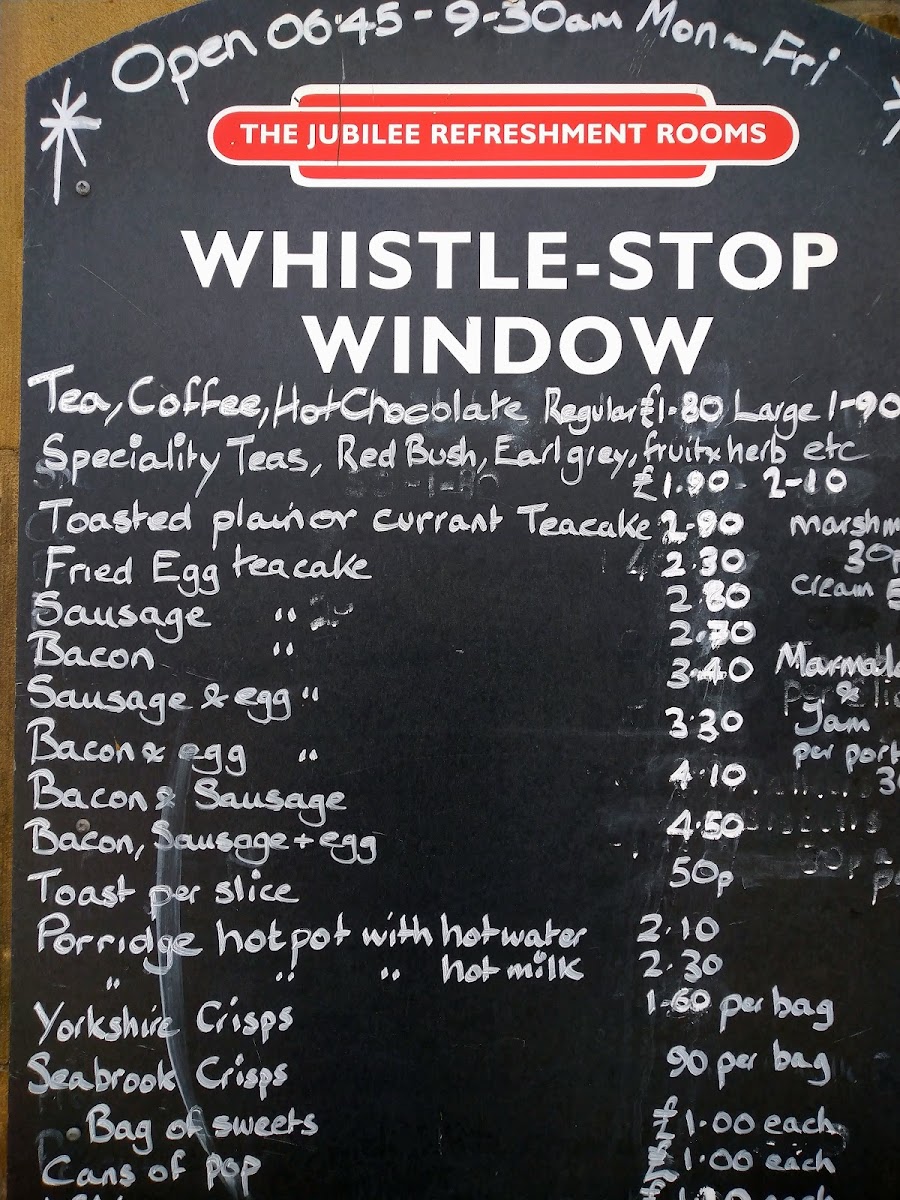 Open 06:45 - 9-30am Mon - Fri
THE JUBILEE REFRESHMENT ROOMS
WHISTLE-STOP
WINDOW
Tea, Coffee, Hot Chocolate Regular £1.80 Large 1-90
Speciality Teas, Red Bush, Earl grey, fruit & herb etc
£1.90 - 2-10
Toasted plain or currant Teacake 2-90
Fried Egg teacake 2.30
Sausage " 2.80
Bacon " 2.70
Sausage & egg " 3.40
Bacon & egg " 3.30
Bacon & Sausage 4.10
Bacon, Sausage + egg 4.50
Toast per slice 50p
Porridge hot pot with hot water 2.10
" " " hot milk 2.30
Yorkshire Crisps 1-60 per bag
Seabrook Crisps 90 per bag
Bag of sweets £1.00 each
Cans of pop £1.00 each
30p
cream
&
Jam
per